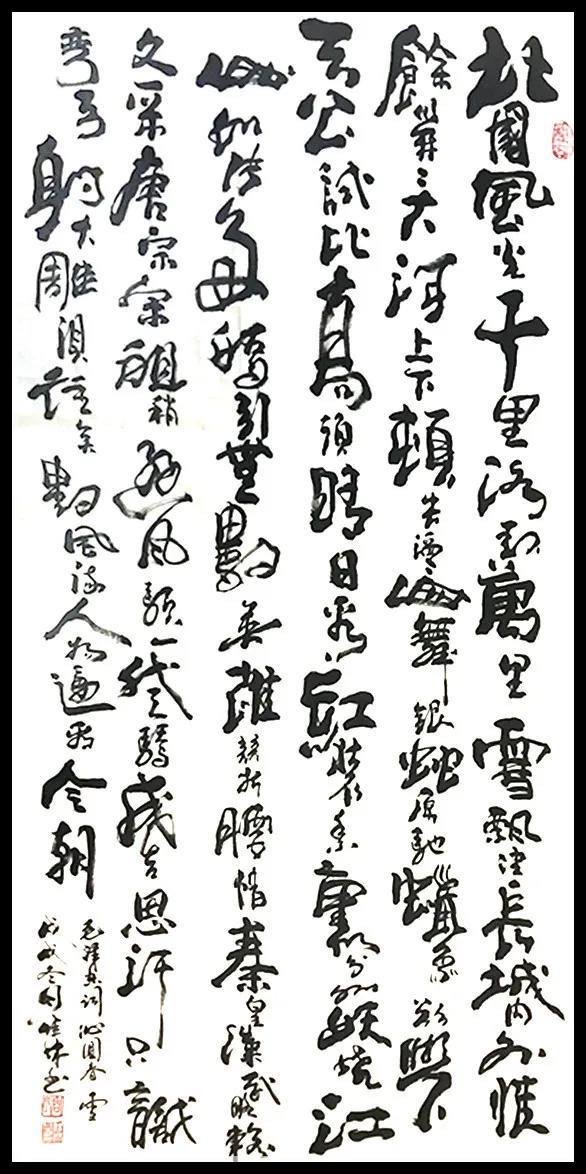 北國風光千里冰封萬里雪飄望長城內外惟
餘莽莽大河上下頓失滔滔山舞銀蛇原馳蠟象欲與
天公試比高須晴日看紅裝素裹分外妖嬈江
山如此多嬌引無數英雄競折腰惜秦皇漢武略輸
文采唐宗宋祖稍遜風騷一代天驕成吉思汗只識
彎弓射大雕俱往矣數風流人物還看今朝
毛澤東詞沁園春雪
戊戌冬周佳林书